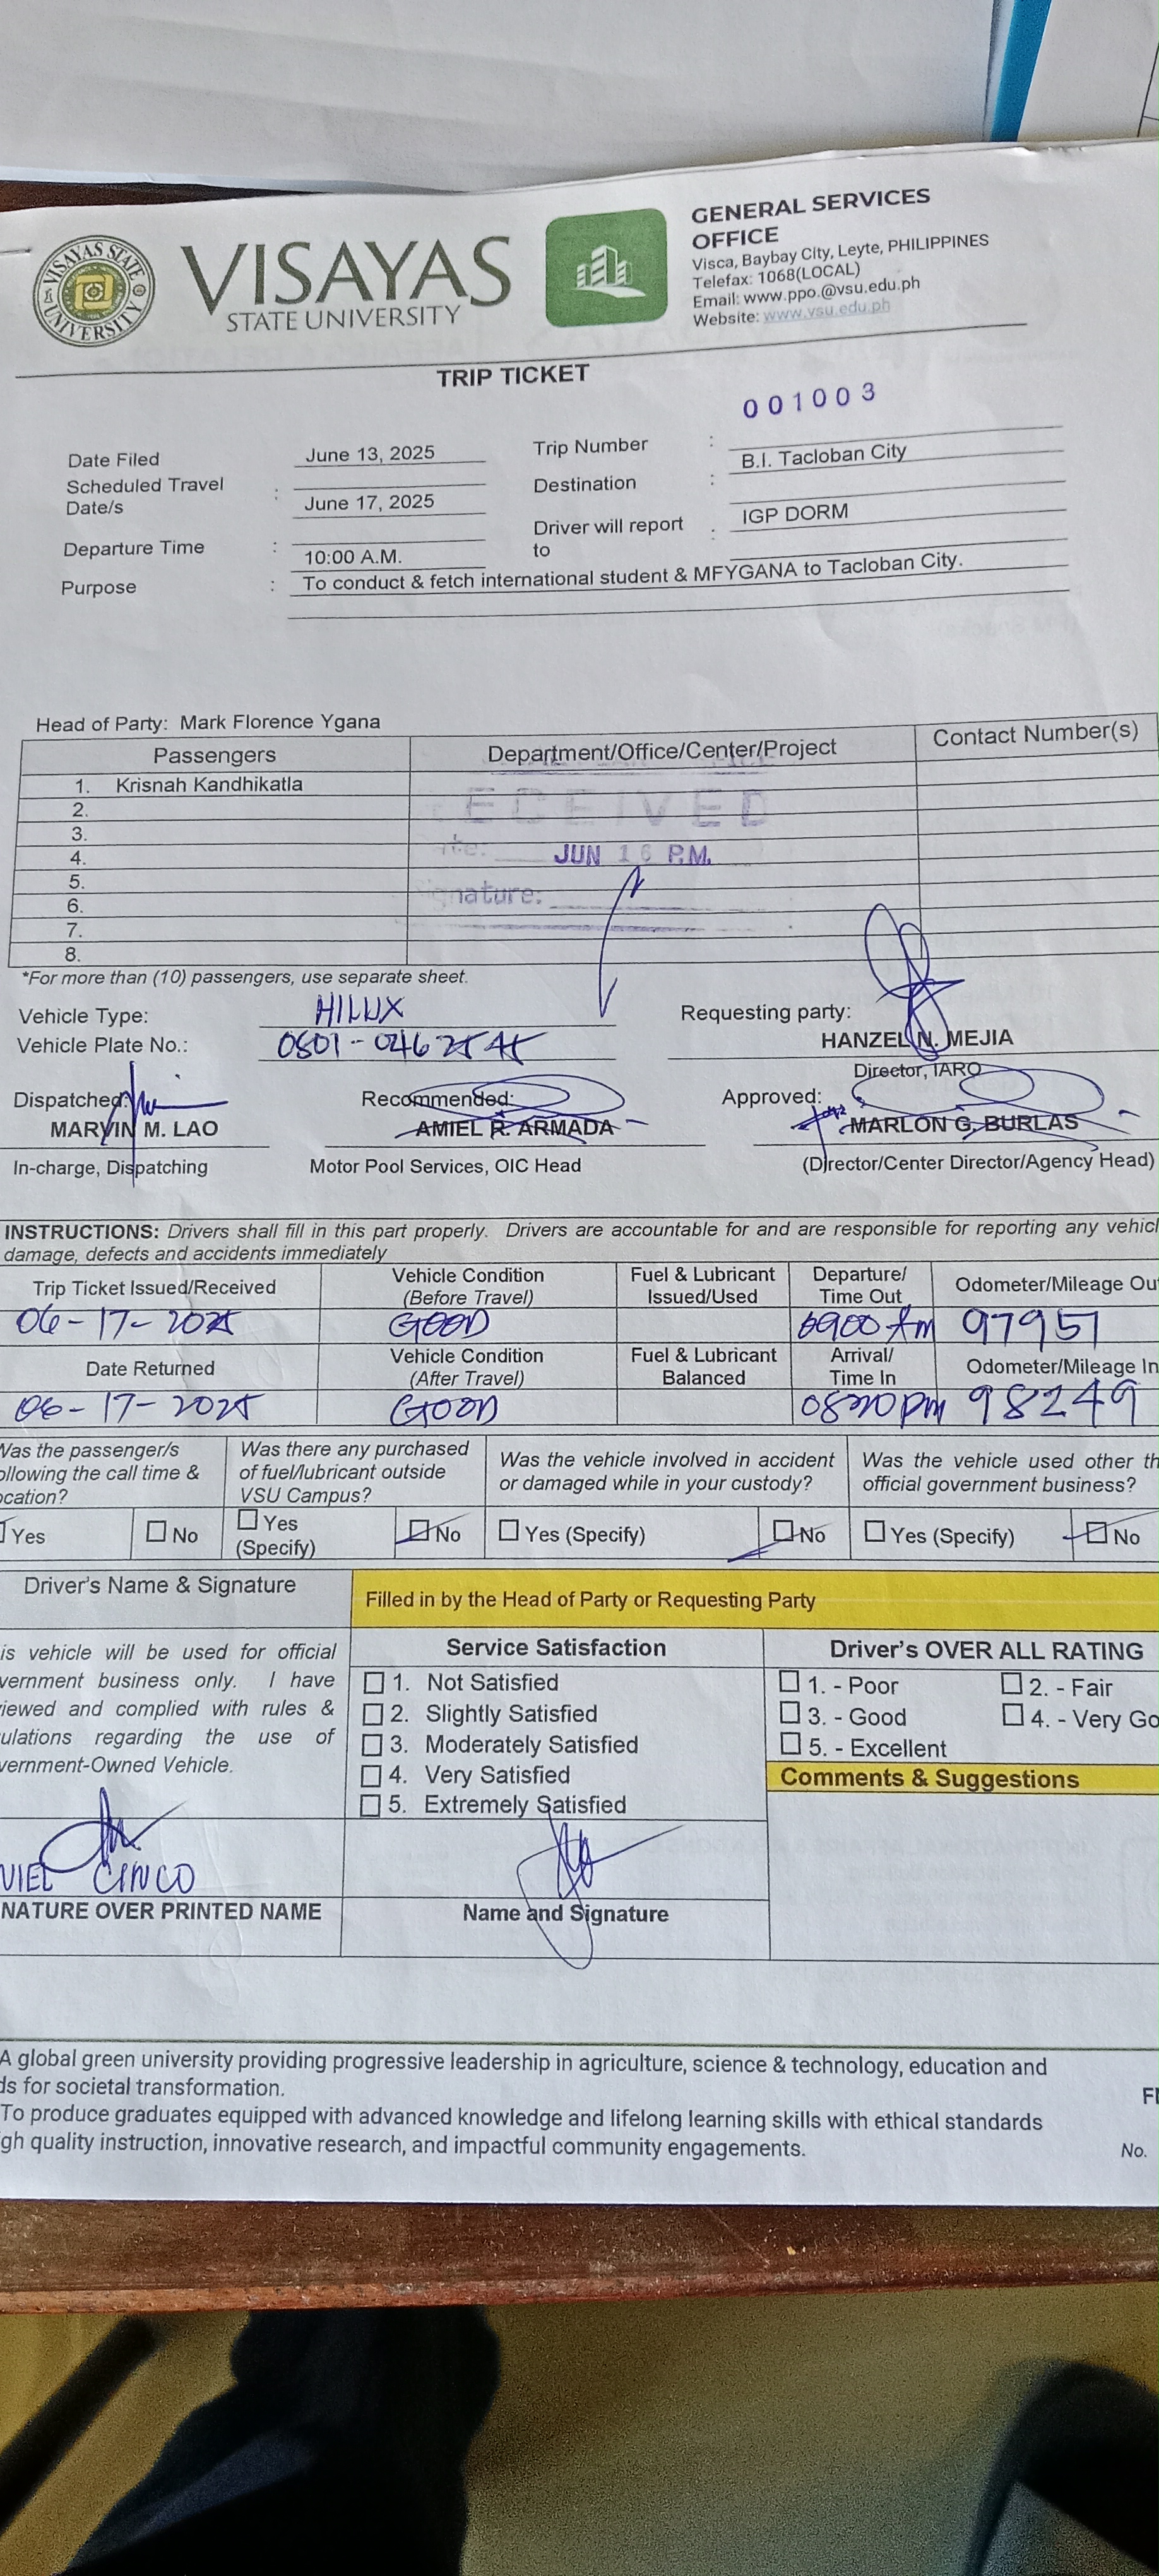 VISAYAS
STATE UNIVERSITY
VISAYAS STATE UNIVERSITY
GENERAL SERVICES
OFFICE
Visca, Baybay City, Leyte, PHILIPPINES
Telefax: 1068(LOCAL)
Email: www.ppo.@vsu.edu.ph
Website: www.vsu.edu.ph
TRIP TICKET
001003
Date Filed June 13, 2025 Trip Number :
Scheduled Travel Date/s : June 17, 2025 Destination : B.I. Tacloban City
Departure Time : 10:00 A.M. Driver will report to : IGP DORM
Purpose : To conduct & fetch international student & MFYGANA to Tacloban City.
Head of Party: Mark Florence Ygana
Passengers Department/Office/Center/Project Contact Number(s)
1. Krisnah Kandhikatla
2.
3.
4.
5.
6.
7.
8.
ECEIVED
JUN 16 P.M.
nature:
*For more than (10) passengers, use separate sheet.
Vehicle Type: HILUX Requesting party:
Vehicle Plate No.: HANZEL N. MEJIA
Director, IARO
Dispatched: Recommended: Approved:
MARVIN M. LAO AMIEL R. ARMADA MARLON G. BURLAS
In-charge, Dispatching Motor Pool Services, OIC Head (Director/Center Director/Agency Head)
INSTRUCTIONS: Drivers shall fill in this part properly. Drivers are accountable for and are responsible for reporting any vehicl
damage, defects and accidents immediately
Trip Ticket Issued/Received Vehicle Condition (Before Travel) Fuel & Lubricant Issued/Used Departure/ Time Out Odometer/Mileage Ou
06-17-2025 GOOD 97951
Date Returned Vehicle Condition (After Travel) Fuel & Lubricant Balanced Arrival/ Time In Odometer/Mileage In
06-17-2025 GOOD 98249
Was the passenger/s
ollowing the call time &
ocation?
Was there any purchased
of fuel/lubricant outside
VSU Campus?
Was the vehicle involved in accident
or damaged while in your custody?
Was the vehicle used other th
official government business?
Yes No Yes (Specify) No Yes (Specify) No Yes (Specify) No
Driver's Name & Signature Filled in by the Head of Party or Requesting Party
is vehicle will be used for official
vernment business only. I have
iewed and complied with rules &
ulations regarding the use of
vernment-Owned Vehicle.
Service Satisfaction
1. Not Satisfied
2. Slightly Satisfied
3. Moderately Satisfied
4. Very Satisfied
5. Extremely Satisfied
Driver's OVER ALL RATING
1. - Poor 2. - Fair
3. - Good 4. - Very Go
5. - Excellent
Comments & Suggestions
VIEL CINCO
NATURE OVER PRINTED NAME Name and Signature
A global green university providing progressive leadership in agriculture, science & technology, education and
ds for societal transformation.
To produce graduates equipped with advanced knowledge and lifelong learning skills with ethical standards
gh quality instruction, innovative research, and impactful community engagements.
No.